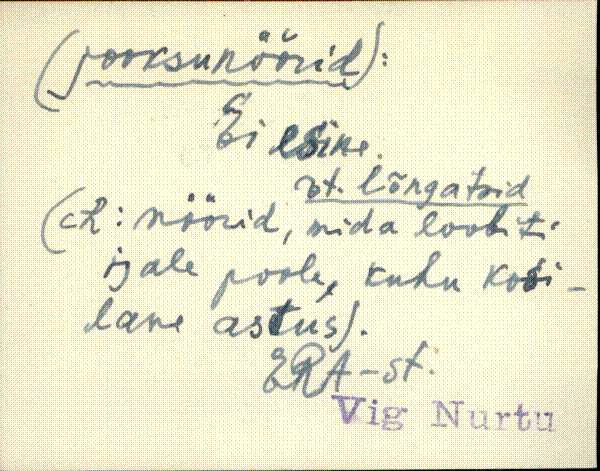 (jooksunöörid):
Ei esine.
vt. lõngatoid
(ch: nöörid, mida loobit-
igale poole, kuhu kosi-
lane astus).
ERA-st.
Vig Nurtu